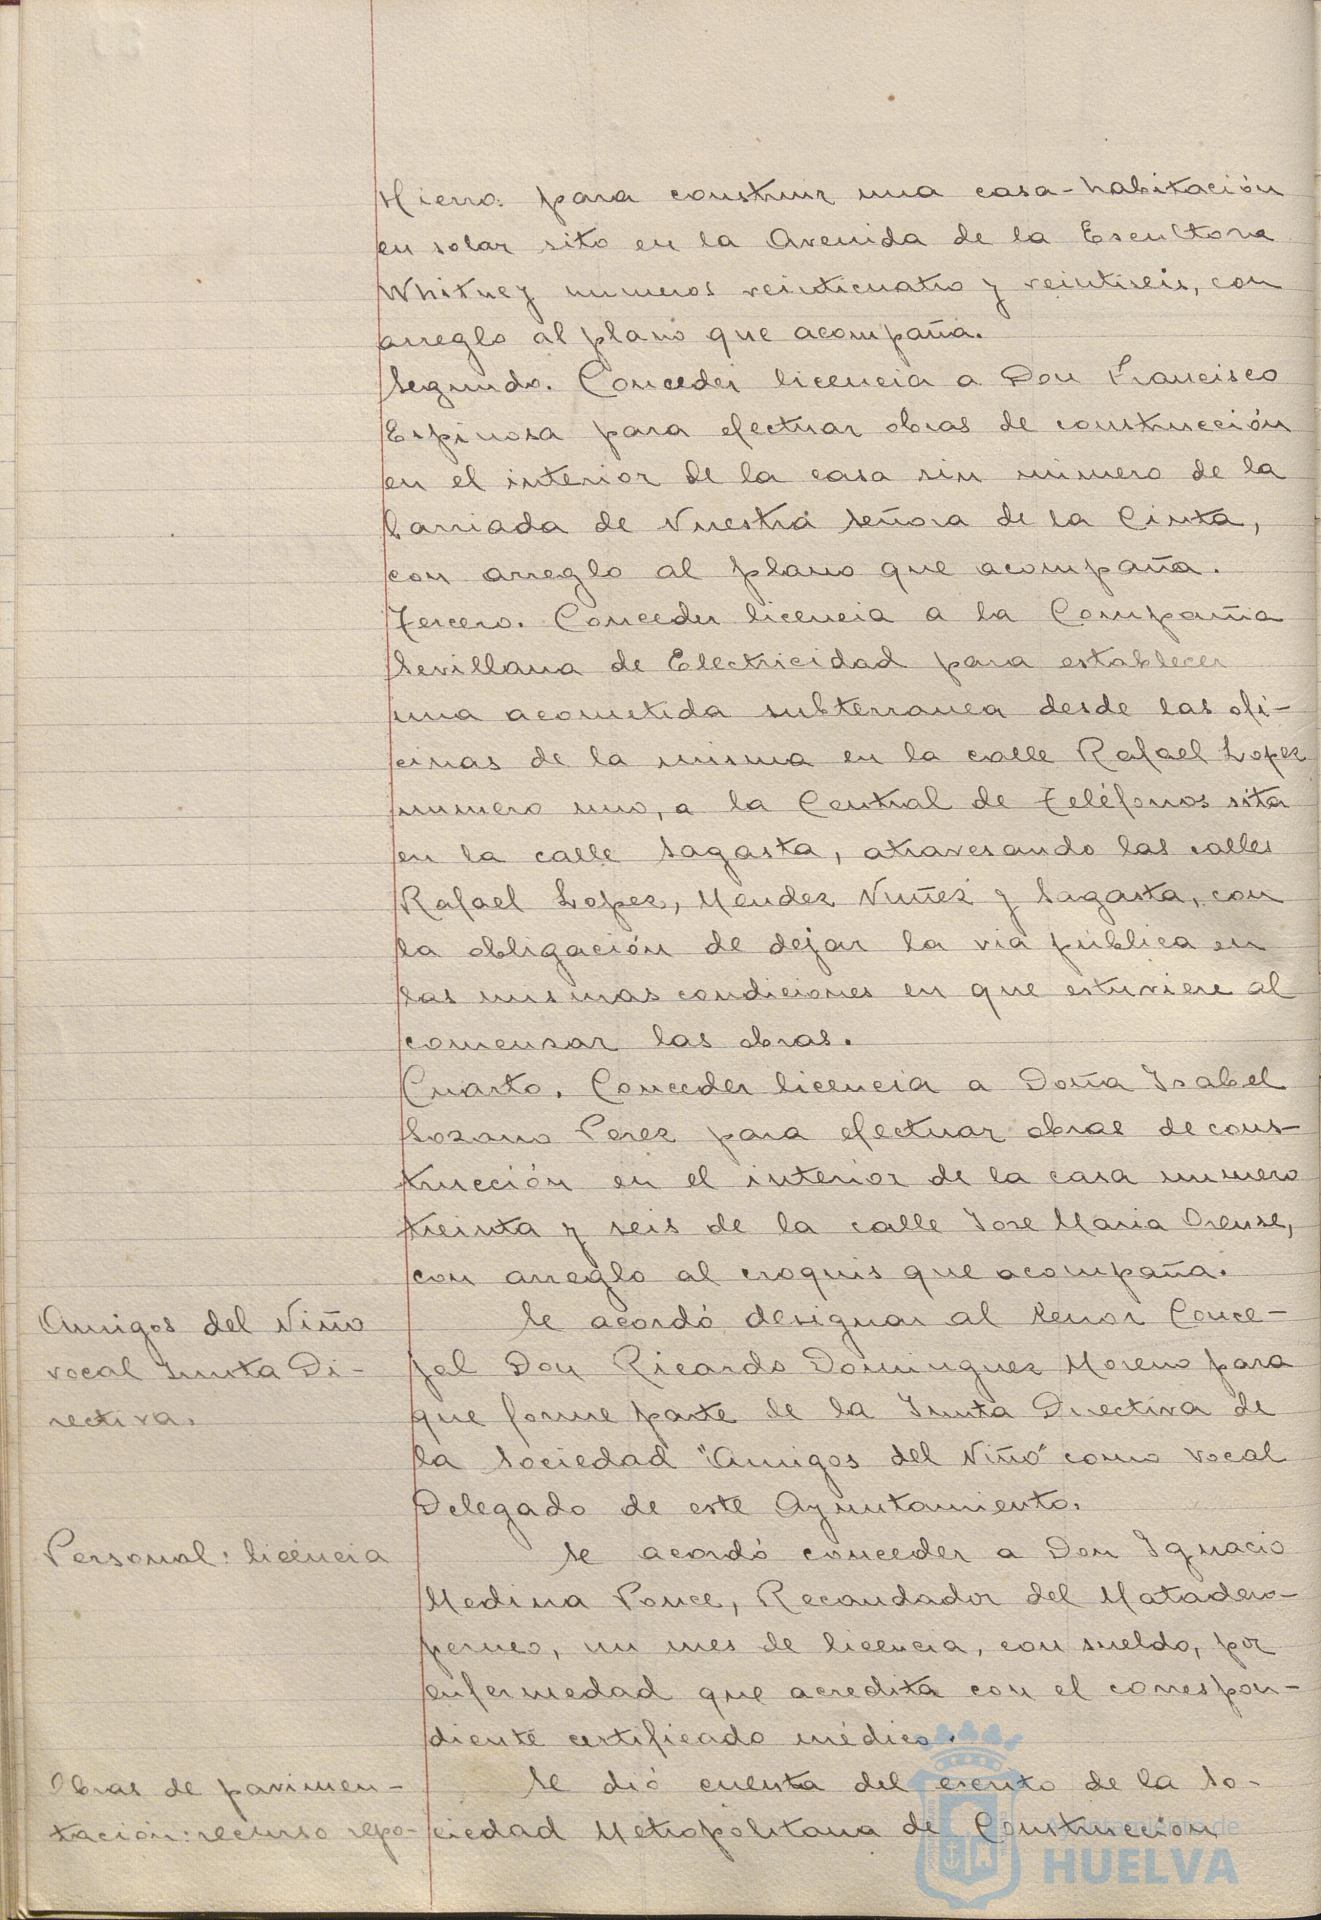 Hierro: para construir una casa-habitación
en solar sito en la Avenida de la Escultora
Whitney numeros veinticuatro y veintiseis, con
arreglo al plano que acompaña.
Segundo. Conceder licencia a Don Francisco
Espinosa para efectuar obras de construcción
en el interior de la casa sin número de la
barriada de Nuestra Señora de la Cinta,
con arreglo al plano que acompaña.
Tercero. Conceder licencia a la Compañia
Sevillana de Electricidad para establecer
una acometida subterranea desde las ofi-
cinas de la misma en la calle Rafael Lopez
numero uno, a la Central de Teléfonos sita
en la calle Sagasta, atravesando las calles
Rafael Lopez, Mendez Nuñez y Sagasta, con
la obligación de dejar la via pública en
las mismas condiciones en que estuviere al
comenzar las obras.
Cuarto. Conceder licencia a Doña Isabel
Lozano Perez para efectuar obras de cons-
trucción en el interior de la casa numero
treinta y seis de la calle Jose Maria Orense,
con arreglo al croquis que acompaña.
Amigos del Niño
vocal Junta Di-
rectiva.
Se acordó designar al Señor Conce-
jal Don Ricardo Dominguez Moreno para
que forme parte de la Junta Directiva de
la Sociedad "Amigos del Niño" como vocal
Delegado de este Ayuntamiento.
Personal: licencia
Se acordó conceder a Don Ignacio
Medina Ponce, Recaudador del Matadero-
perneo, un mes de licencia, con sueldo, por
enfermedad que acredita con el correspon-
diente certificado médico.
Obras de pavimen-
tación: recurso repo-
Se dió cuenta del escrito de la So-
ciedad Metropolitana de Construccion
Ayuntamiento de
HUELVA